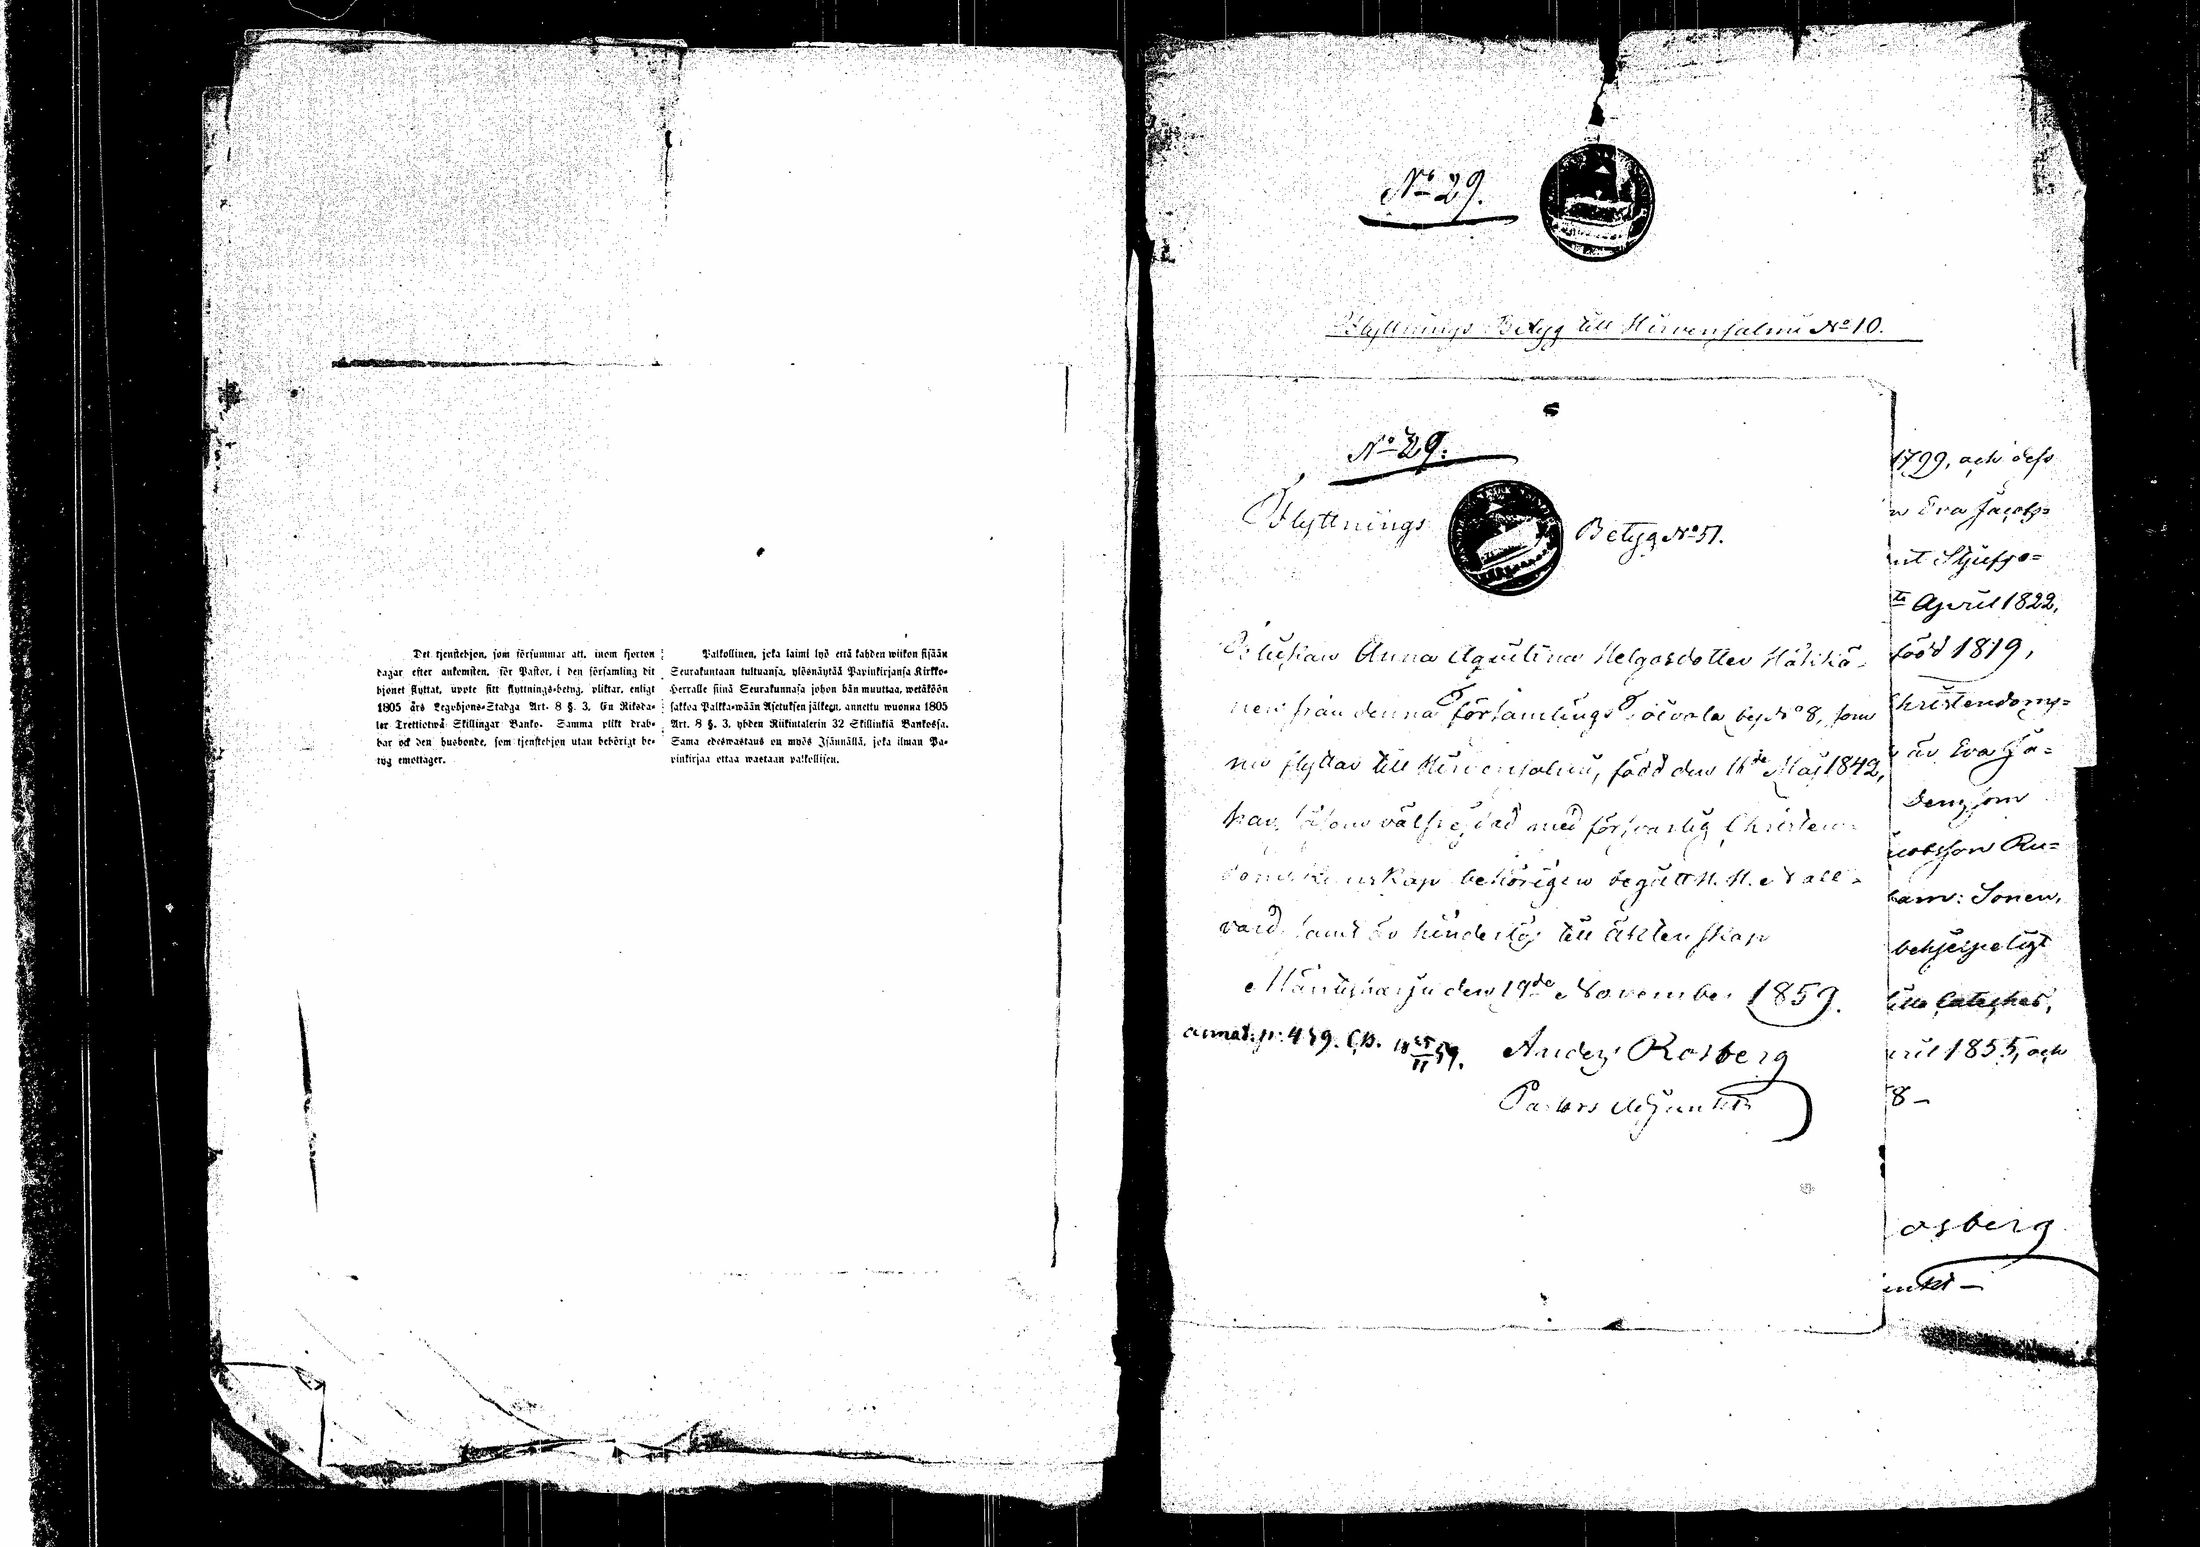 Det tjenstehjon, som försummar att, inom fjorton
dagar efter ankomsten, för Pastor, i den församling dit
hjonet flyttat, uppte sitt flyttnings-betyg, pliktar, enligt
1805 års Legohjons-Stadga Art. 8 §. 3. En Riksda-
ler Trettiotwå Skillingar Banko. Samma plikt drab-
bar ock den husbonde, som tjenstehjon utan behörigt be-
tyg emottager.
Palkollinen, joka laimi lyö että kahden wiikon sisään
Seurakuntaan tultuansa, ylösnäytää Papinkirjansa Kirkko-
Herralle siinä Seurakunnasa johon hän muuttaa, wetäköön
sakkoa Palkka-wään Asetuksen jälkeen, annettu wuonna 1805
Art. 8 §. 3, yhden Riikintalerin 32 Skillinkiä Bankossa.
Sama edeswastaus on myös Isännällä, joka ilman Pa-
pinkirjaa ottaa wastaan palkollisen.
No 29.
Flyttnings Betyg till Hirvensalmi No 10.
No 29.
Flyttnings Betyg No 51.
Pigan Anna Agulina Helgasdotter Häkkä-
nen från denna församlings by No 8, som
nu flyttar till Hirvensalmi, född den 16de Maj 1842,
har, med försvarlig Christen-
behörigen begått H. H. Natt-
vard, samt är hinderlös till äktenskap
Mäntyharju den 19de November 1859.
annot. p. 459. C.B. 18 25/11 59.
Anders Rosberg
Pastors Adjunkt
1799, och dess
Eva Jacobs-
April 1822,
född 1819,
Christendoms-
är Eva Ja-
som
Ru-
Sonen,
behjelpeligt
Lilla Cateches,
1855, och
8 –
osberg
unkt –